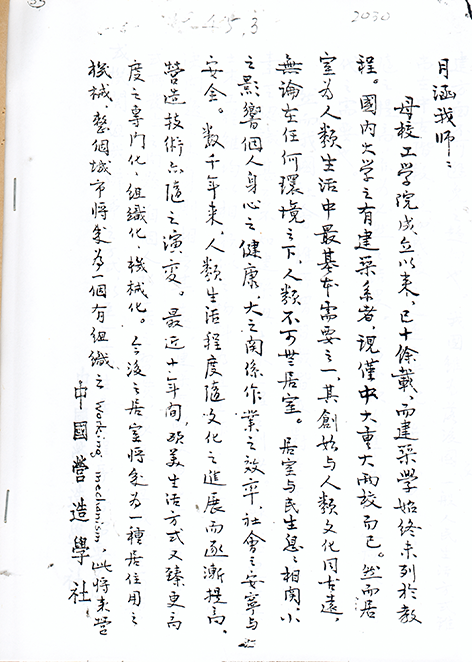 2030
月涵我師：
母校工学院成立以来，已十餘載，而建築学始终未列於教
程。國内大学之有建築系者，現僅中大重大兩校而已。然而居
室为人類生活中最基本需要之一，其創始与人類文化同古遠，
無論在任何環境之下，人類不可無居室。居室与民生息息相関，小
之影響個人身心之健康，大之関係作業之效率，社會之安寧与
安全。数千年来，人類生活程度隨文化之進展而逐漸提高，
營造技術亦隨之演变。最近十年间，欧美生活方式又臻更高
度之專门化、组織化、機械化。今後之居室將成为一種居住用之
機械，整個城市將成为一個有组織之 Working mechanism，此將来營
中國營造學社